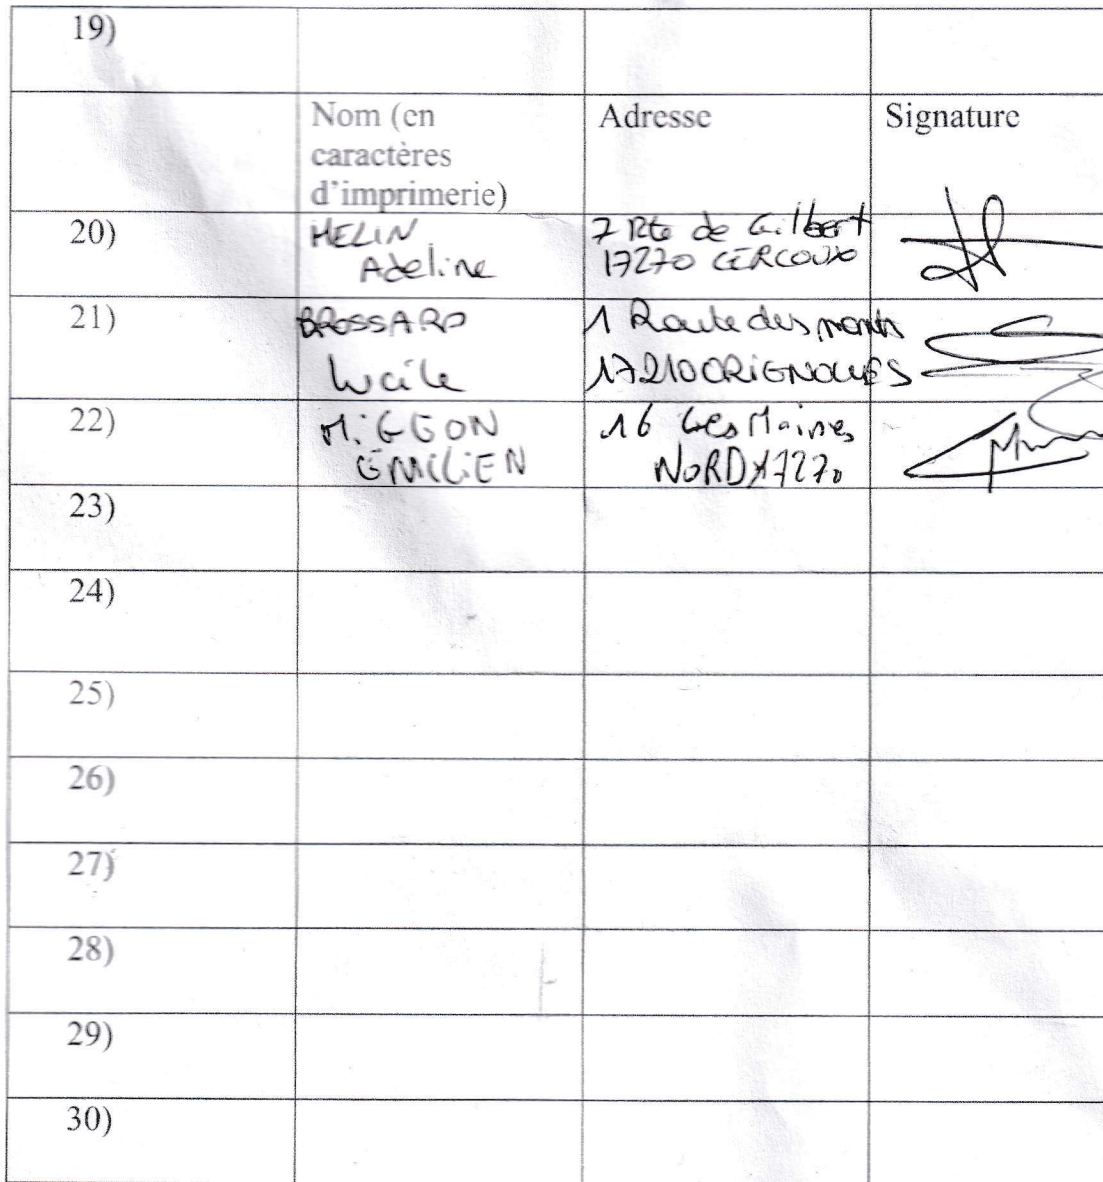 19)
Nom (en
caractères
d'imprimerie)
Adresse
Signature
20)
MELIN
Adeline
7 Rte de Gilbert
17270 CERCOUX
21)
BROSSARD
Lucile
1 Route des
17210 ORIGNOLLES
22)
MiGEON
EMiLiEN
16 Les Maines
NORD 17270
23)
24)
25)
26)
27)
28)
29)
30)